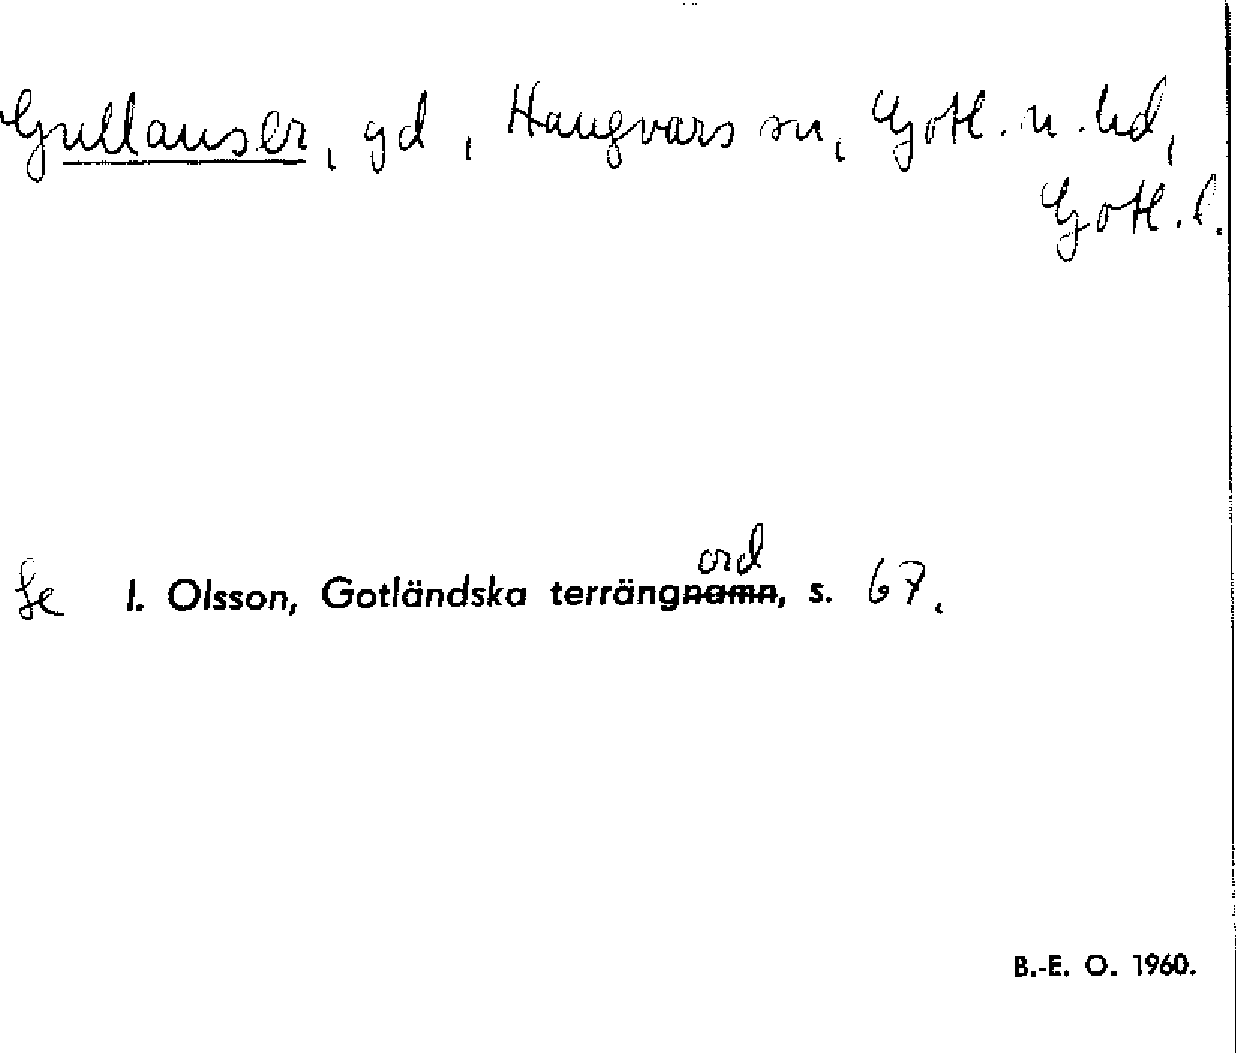 Gullauser, gd, Hangvars sn, Gotl. n. hd,
Gotl. l.
Se I. Olsson, Gotländska terrängnamn, s. 67.
ord
B.-E. O. 1960.